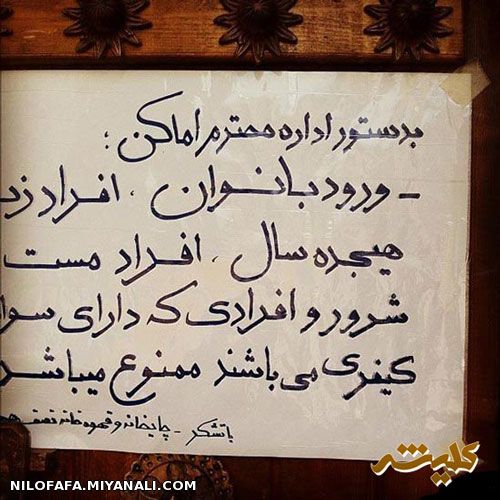 بدستور اداره محترم اماکن :
- ورود بانوان ، افراد زیر
هیجده سال ، افراد مست
شرور و افرادی که دارای سوا
کیفری می باشند ممنوع میباشد
با تشکر - چایخانه و قهوه خانه
کلیشه
NILOFAFA.MIYANALI.COM